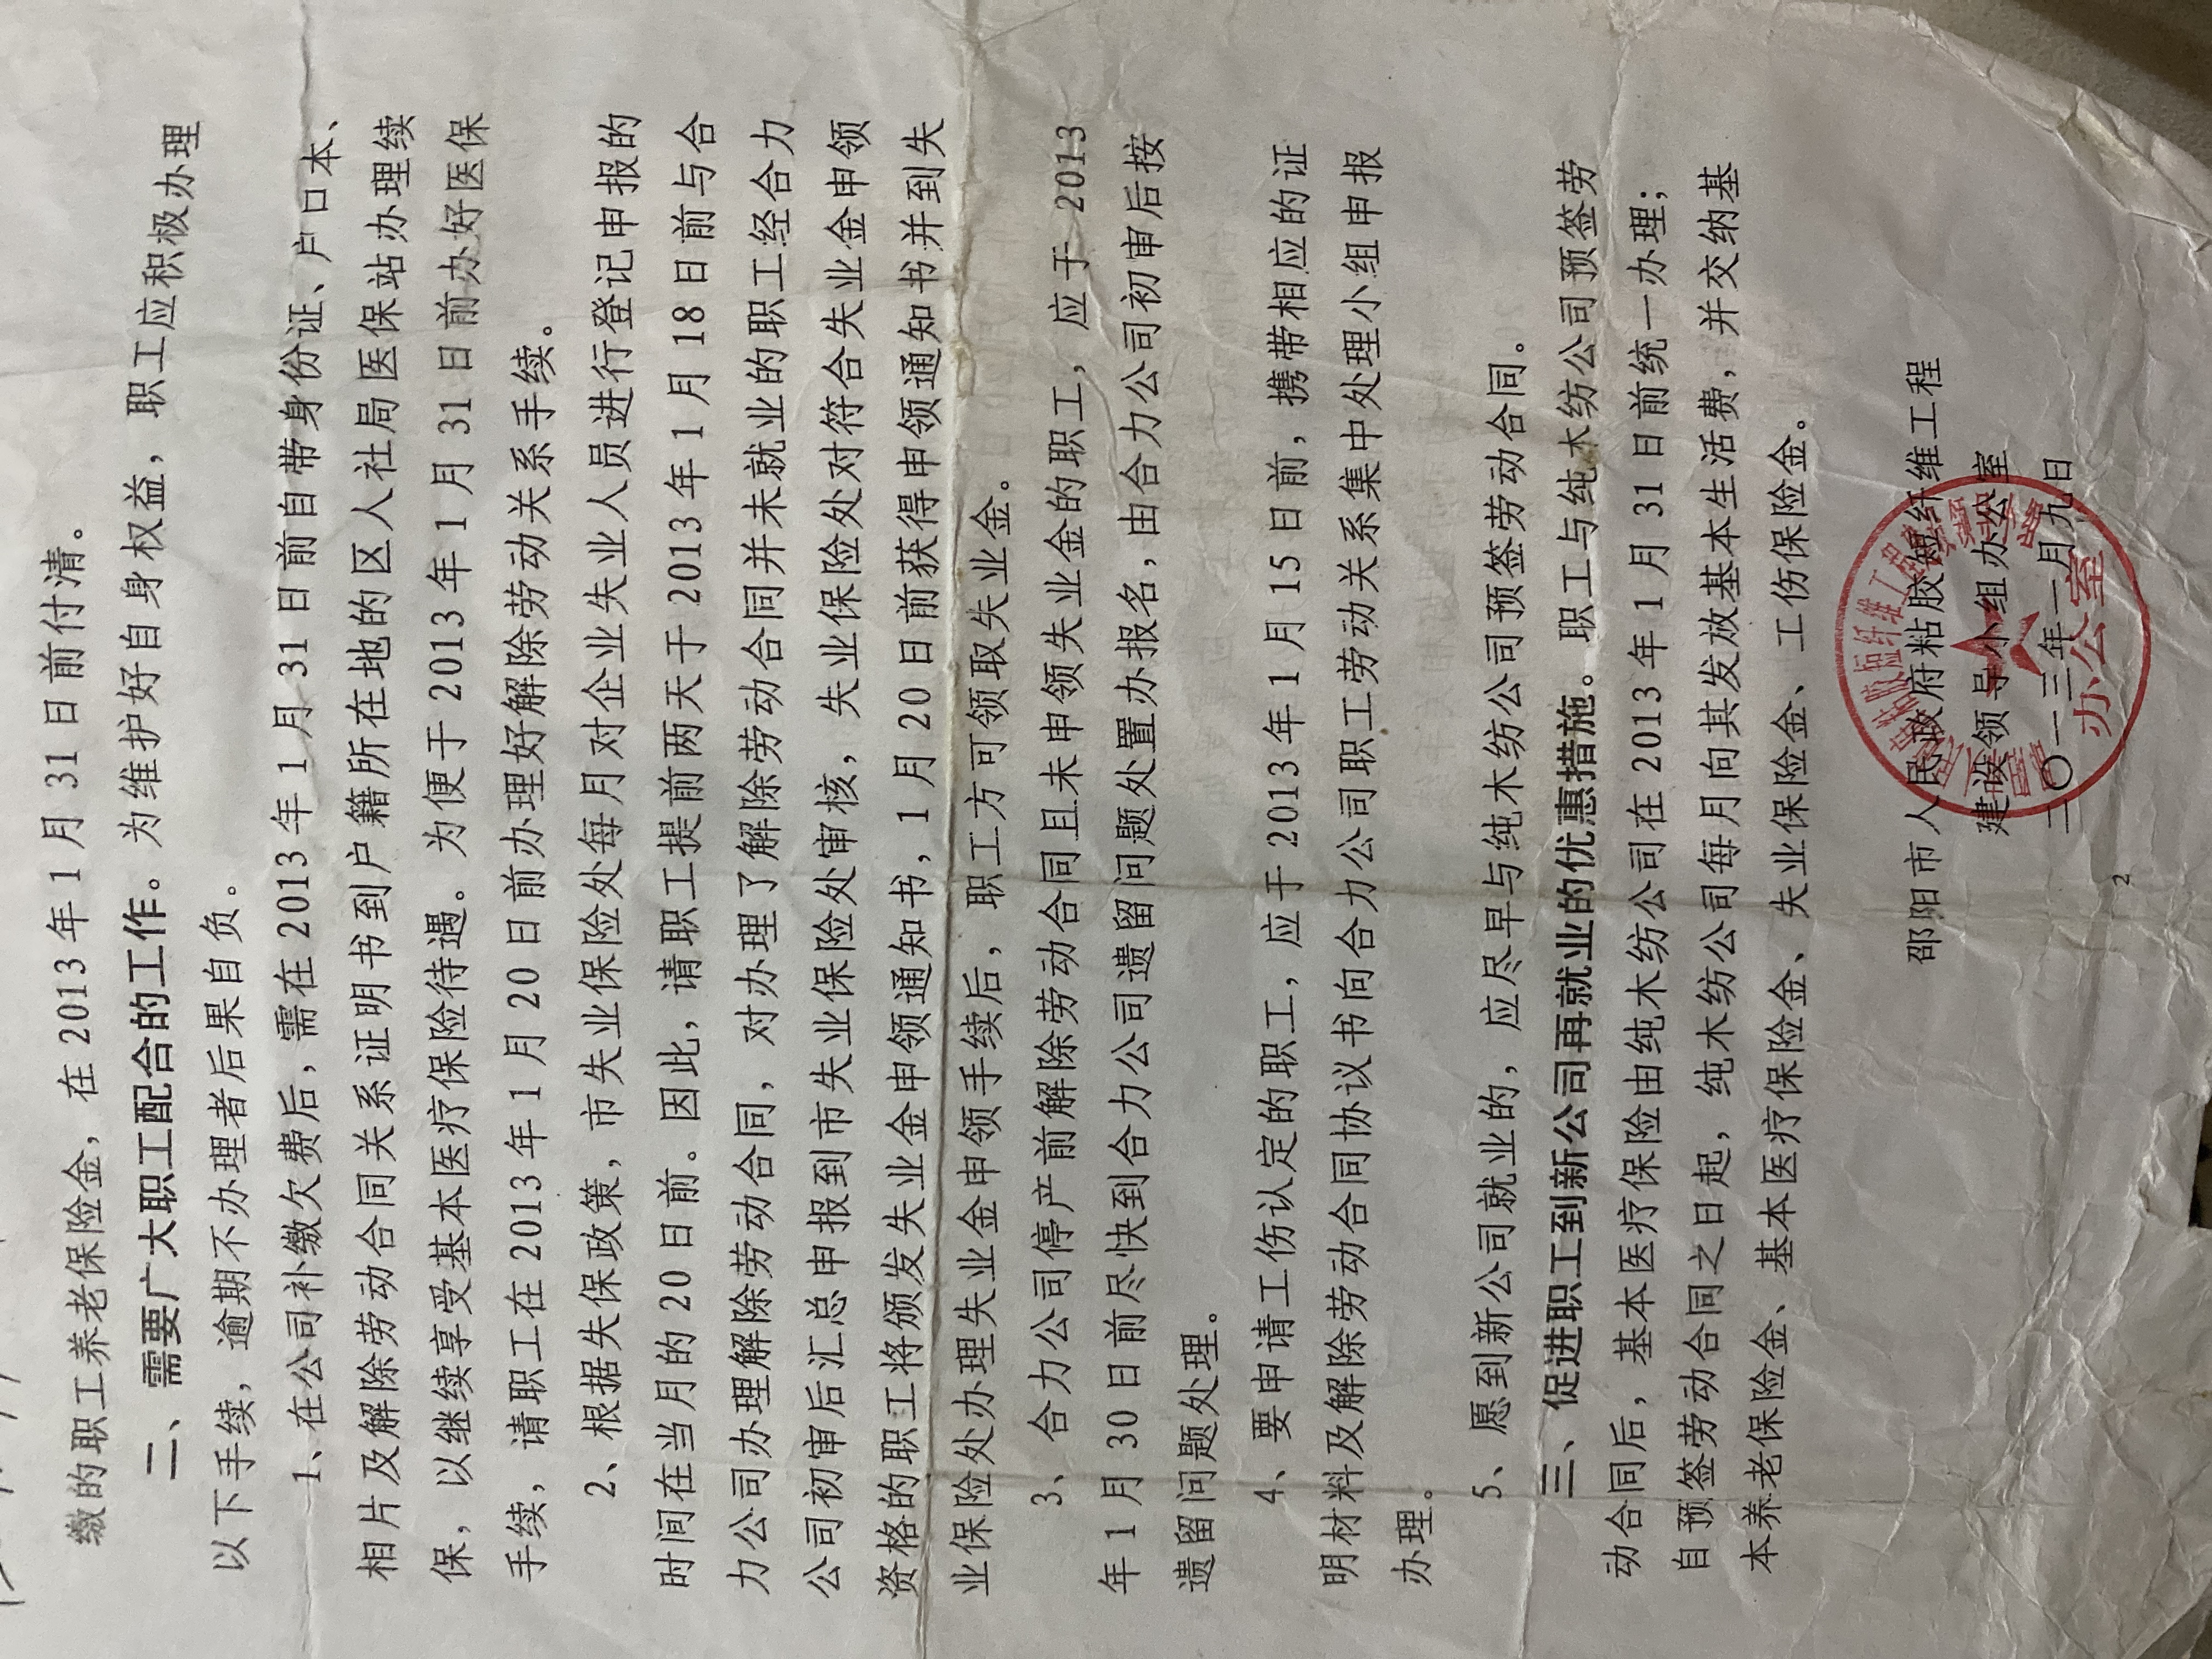 缴的职工养老保险金，在2013年1月31日前付清。
二、需要广大职工配合的工作。为维护好自身权益，职工应积极办理
以下手续，逾期不办理者后果自负。
1、在公司补缴欠费后，需在2013年1月31日前自带身份证、户口本、
相片及解除劳动合同关系证明书到户籍所在地的区人社局医保站办理续
保，以继续享受基本医疗保险待遇。为便于2013年1月31日前办好医保
手续，请职工在2013年1月20日前办理好解除劳动关系手续。
2、根据失保政策，市失业保险处每月对企业失业人员进行登记申报的
时间在当月的20日前。因此，请职工提前两天于2013年1月18日前与合
力公司办理解除劳动合同，对办理了解除劳动合同并未就业的职工经合力
公司初审后汇总申报到市失业保险处审核，失业保险处对符合失业金申领
资格的职工将颁发失业金申领通知书，1月20日前获得申领通知书并到失
业保险处办理失业金申领手续后，职工方可领取失业金。
3、合力公司停产前解除劳动合同且未申领失业金的职工，应于2013
年1月30日前尽快到合力公司遗留问题处置办报名，由合力公司初审后按
遗留问题处理。
4、要申请工伤认定的职工，应于2013年1月15日前，携带相应的证
明材料及解除劳动合同协议书向合力公司职工劳动关系集中处理小组申报
办理。
5、愿到新公司就业的，应尽早与纯木纺公司预签劳动合同。
三、促进职工到新公司再就业的优惠措施。职工与纯木纺公司预签劳
动合同后，基本医疗保险由纯木纺公司在2013年1月31日前统一办理；
自预签劳动合同之日起，纯木纺公司每月向其发放基本生活费，并交纳基
本养老保险金、基本医疗保险金、失业保险金、工伤保险金。
邵阳市人民政府粘胶短纤维工程
建设领导小组办公室
二〇一三年一月九日
办公室
2